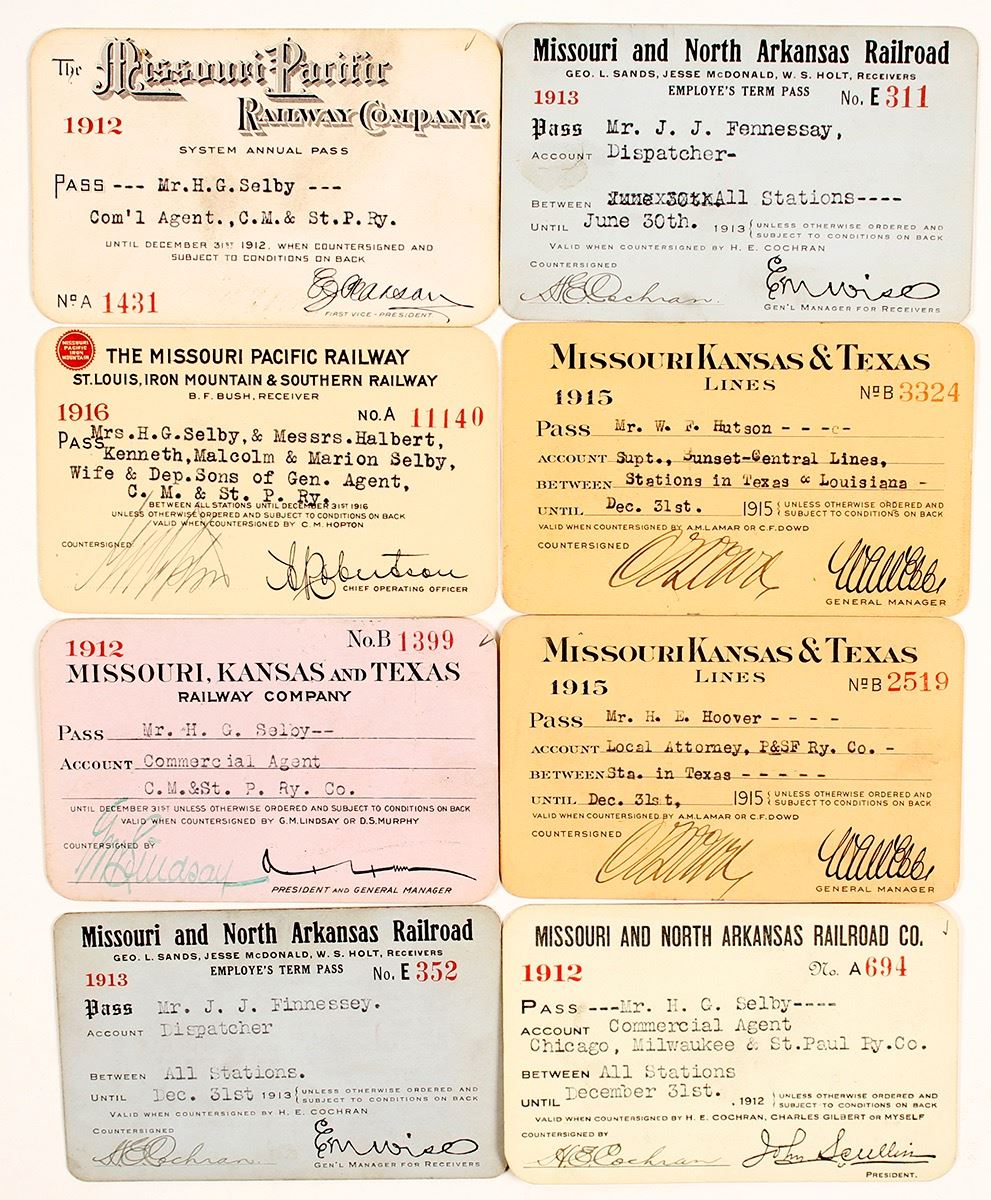 The Missouri Pacific
Railway Company.
1912
SYSTEM ANNUAL PASS
PASS --- Mr.H.G.Selby ---
Com'l Agent.,C.M.& St.P.Ry.
UNTIL DECEMBER 31ST 1912, WHEN COUNTERSIGNED AND
SUBJECT TO CONDITIONS ON BACK
FIRST VICE-PRESIDENT
No A 1431
Missouri and North Arkansas Railroad
GEO. L. SANDS, JESSE McDONALD, W. S. HOLT, RECEIVERS
EMPLOYE'S TERM PASS
1913 No. E 311
Pass Mr. J. J. Fennessay,
ACCOUNT Dispatcher-
BETWEEN June 30th. All Stations----
UNTIL June 30th. 1913 { UNLESS OTHERWISE ORDERED AND
SUBJECT TO CONDITIONS ON BACK
VALID WHEN COUNTERSIGNED BY H. E. COCHRAN
COUNTERSIGNED
H E Cochran. E M Wise
GEN'L MANAGER FOR RECEIVERS
MISSOURI PACIFIC IRON MOUNTAIN
THE MISSOURI PACIFIC RAILWAY
ST. LOUIS, IRON MOUNTAIN & SOUTHERN RAILWAY
B. F. BUSH, RECEIVER
1916 NO. A 11140
PASS Mrs.H.G.Selby,& Messrs.Halbert,
Kenneth,Malcolm & Marion Selby,
Wife & Dep.Sons of Gen. Agent,
C. M. & St. P. Ry.
BETWEEN ALL STATIONS UNTIL DECEMBER 31ST 1916
UNLESS OTHERWISE ORDERED AND SUBJECT TO CONDITIONS ON BACK
VALID WHEN COUNTERSIGNED BY C. M. HOPTON
COUNTERSIGNED
A Robertson
CHIEF OPERATING OFFICER
MISSOURI KANSAS & TEXAS
LINES
1915 No B 3324
PASS Mr. W. F. Hutson - - -c-
ACCOUNT Supt., Sunset-Central Lines,
BETWEEN Stations in Texas & Louisiana -
UNTIL Dec. 31st. 1915 { UNLESS OTHERWISE ORDERED AND
SUBJECT TO CONDITIONS ON BACK
VALID WHEN COUNTERSIGNED BY A.M. LAMAR OR C.F. DOWD
COUNTERSIGNED
GENERAL MANAGER
1912 No. B 1399
MISSOURI, KANSAS AND TEXAS
RAILWAY COMPANY
PASS Mr. H. G. Selby--
ACCOUNT Commercial Agent
C.M.&St. P. Ry. Co.
UNTIL DECEMBER 31ST UNLESS OTHERWISE ORDERED AND SUBJECT TO CONDITIONS ON BACK
VALID WHEN COUNTERSIGNED BY G.M. LINDSAY OR D.S. MURPHY
COUNTERSIGNED BY
Lindsay
PRESIDENT AND GENERAL MANAGER
MISSOURI KANSAS & TEXAS
LINES
1915 No B 2519
PASS Mr. H. E. Hoover - - - -
ACCOUNT Local Attorney, P&SF Ry. Co. -
BETWEEN Sta. in Texas - - - - -
UNTIL Dec. 31st, 1915 { UNLESS OTHERWISE ORDERED AND
SUBJECT TO CONDITIONS ON BACK
VALID WHEN COUNTERSIGNED BY A.M. LAMAR OR C.F. DOWD
COUNTERSIGNED
GENERAL MANAGER
Missouri and North Arkansas Railroad
GEO. L. SANDS, JESSE McDONALD, W. S. HOLT, RECEIVERS
EMPLOYE'S TERM PASS
1913 No. E 352
Pass Mr. J. J. Finnessey.
ACCOUNT Dispatcher
BETWEEN All Stations.
UNTIL Dec. 31st 1913 { UNLESS OTHERWISE ORDERED AND
SUBJECT TO CONDITIONS ON BACK
VALID WHEN COUNTERSIGNED BY H. E. COCHRAN
COUNTERSIGNED
H E Cochran. E M Wise
GEN'L MANAGER FOR RECEIVERS
MISSOURI AND NORTH ARKANSAS RAILROAD CO.
1912 No. A 694
PASS ---Mr. H. G. Selby----
ACCOUNT Commercial Agent
Chicago, Milwaukee & St.Paul Ry.Co.
BETWEEN All Stations
UNTIL December 31st. , 1912 { UNLESS OTHERWISE ORDERED AND
SUBJECT TO CONDITIONS ON BACK
VALID WHEN COUNTERSIGNED BY H. E. COCHRAN, CHARLES GILBERT OR MYSELF
COUNTERSIGNED BY
H E Cochran John Scullin
PRESIDENT.